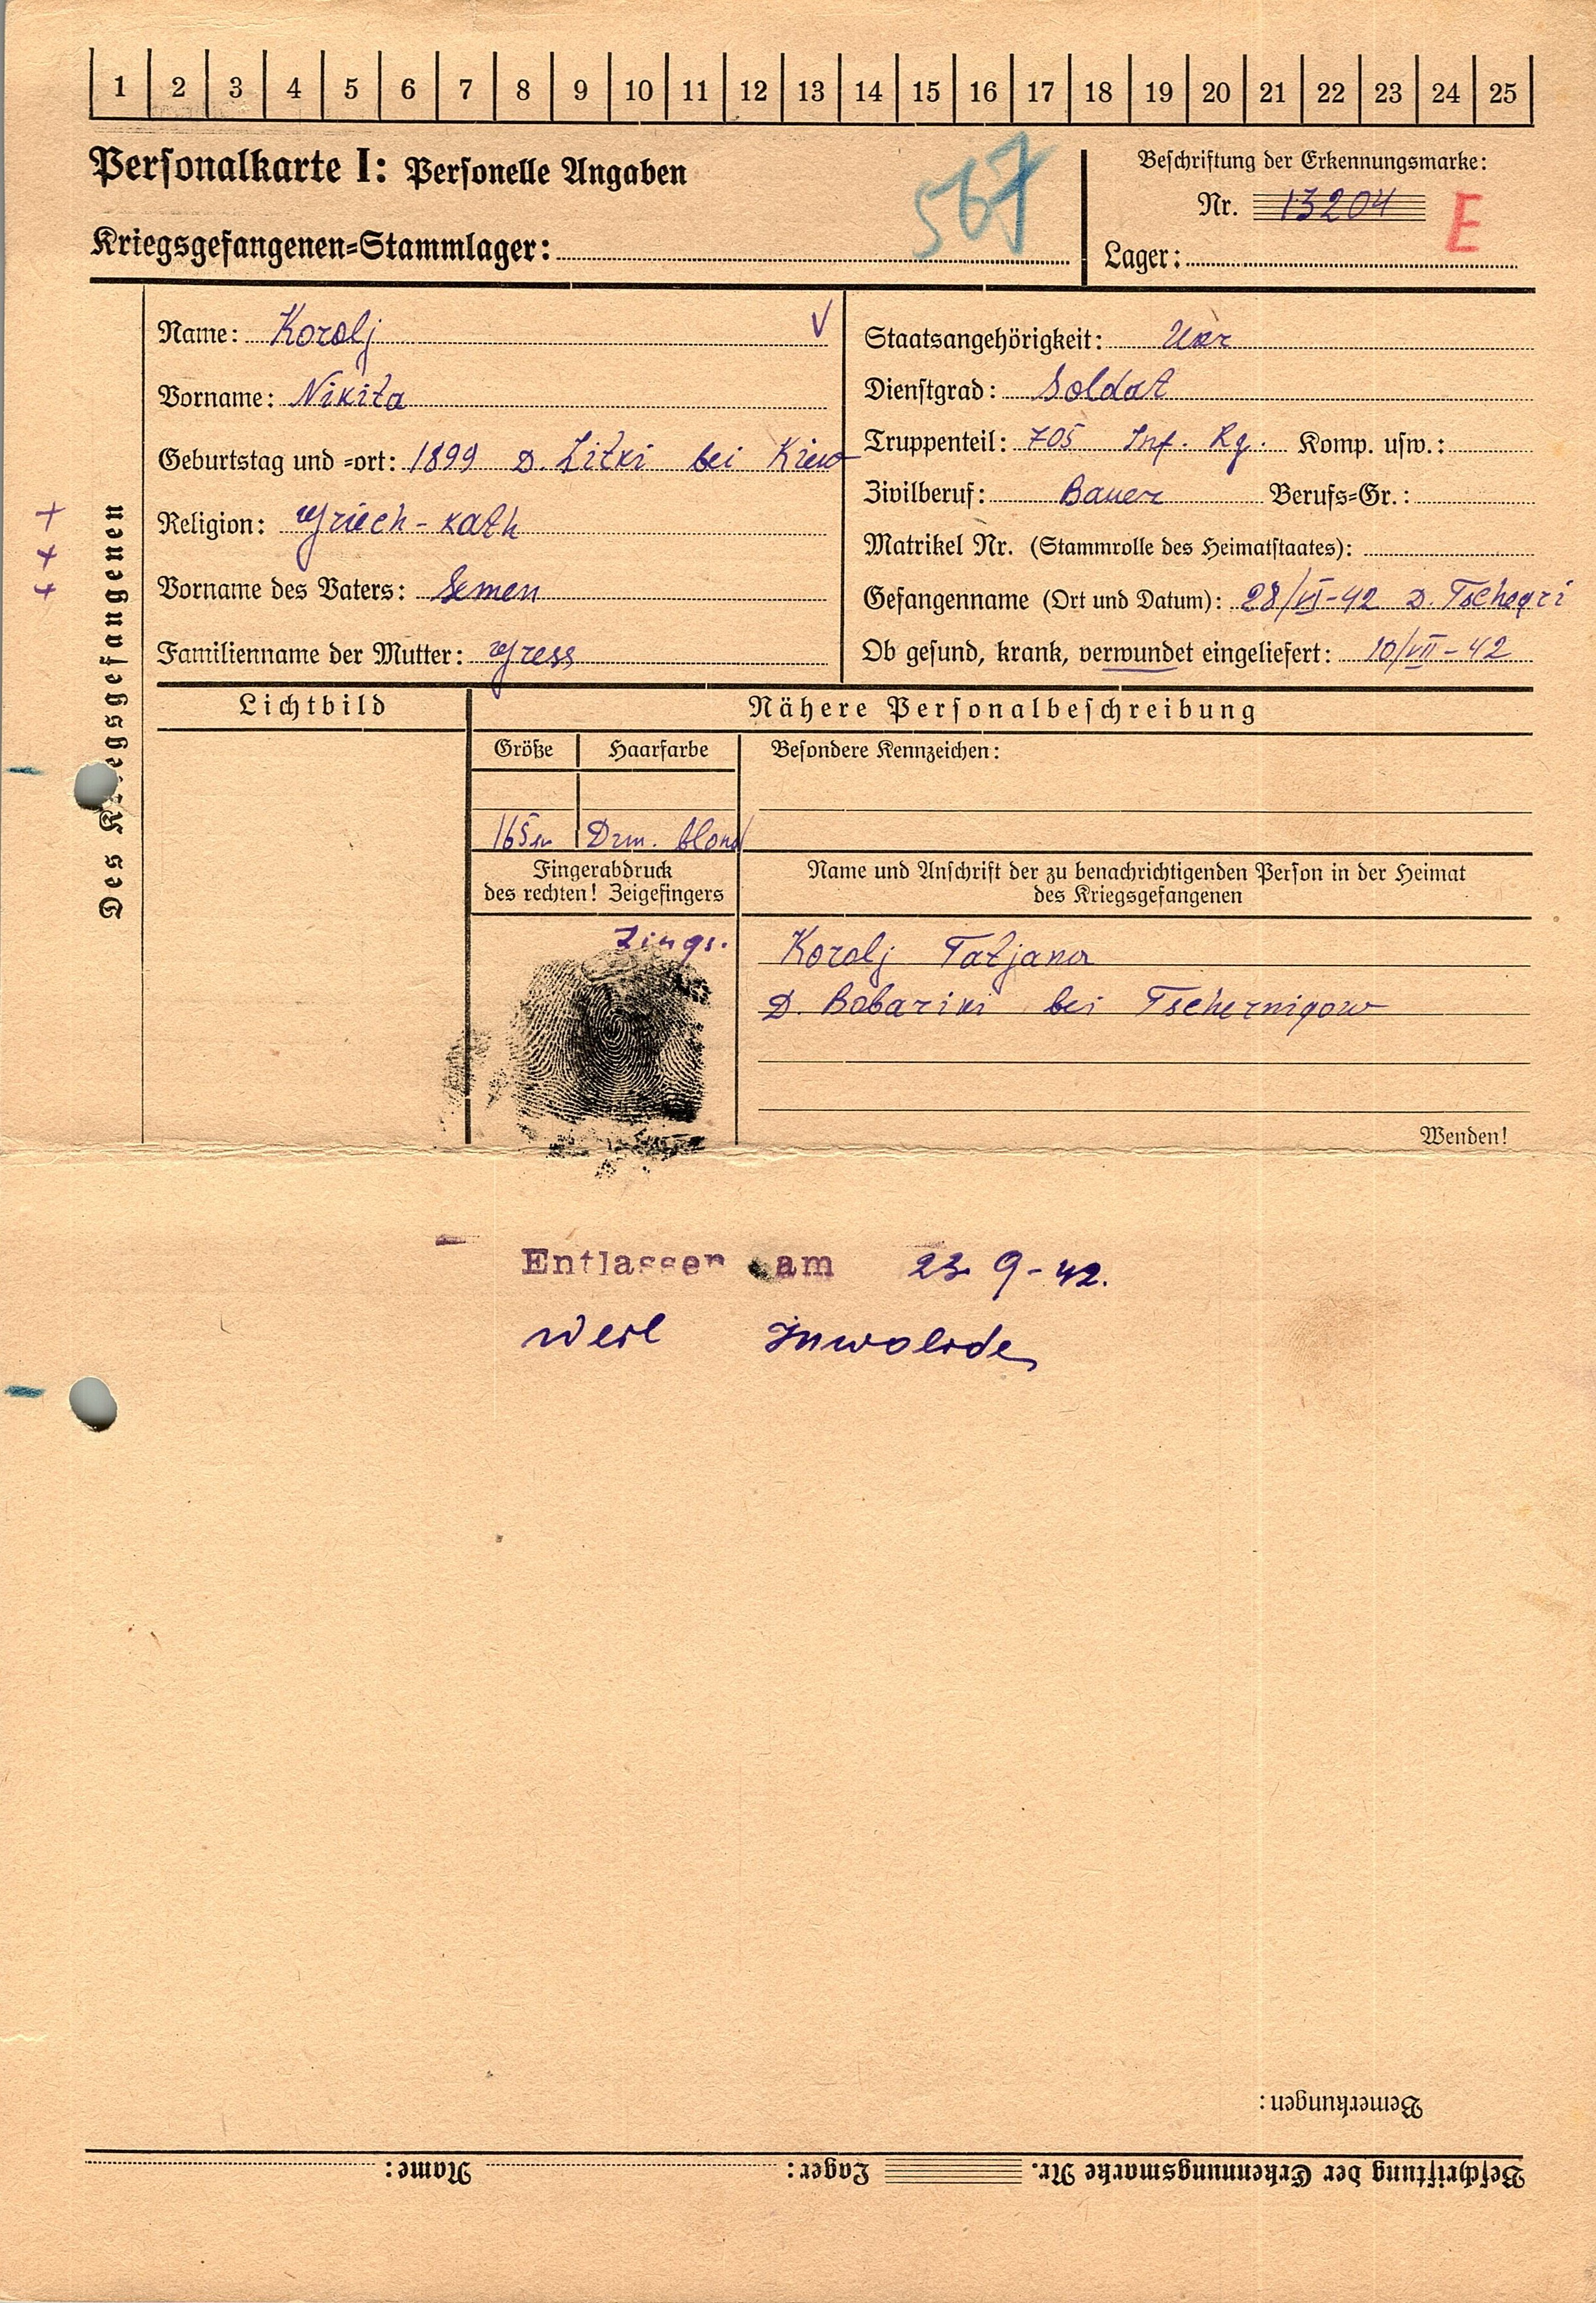 1 2 3 4 5 6 7 8 9 10 11 12 13 14 15 16 17 18 19 20 21 22 23 24 25
Personalkarte I: Personelle Angaben
Kriegsgefangenen-Stammlager:
567
Beschriftung der Erkennungsmarke:
Nr. 13204
E
Lager:
Des Kriegsgefangenen
Name: Korolj V
Vorname: Nikita
Geburtstag und -ort: 1899 D. Litki bei Kiew
Religion: Griech-kath
Vorname des Vaters: Semen
Familienname der Mutter: Gress
Staatsangehörigkeit: Ukr
Dienstgrad: Soldat
Truppenteil: 705 Inf. Rg. Komp. usw.:
Zivilberuf: Bauer Berufs-Gr.:
Matrikel Nr. (Stammrolle des Heimatstaates):
Gefangenname (Ort und Datum): 28/VI-42 D. Tschegri
Ob gesund, krank, verwundet eingeliefert: 10/VII-42
Lichtbild
Nähere Personalbeschreibung
Größe Haarfarbe Besondere Kennzeichen:
165 blond
Fingerabdruck
des rechten! Zeigefingers
Name und Anschrift der zu benachrichtigenden Person in der Heimat
des Kriegsgefangenen
Korolj Tatjana
D. Bobariki bei Tschernigow
Wenden!
Entlassen am 23 9-42.
weil Inwolide
Bemerkungen:
Beschriftung der Erkennungsmarke Nr. Lager: Name: